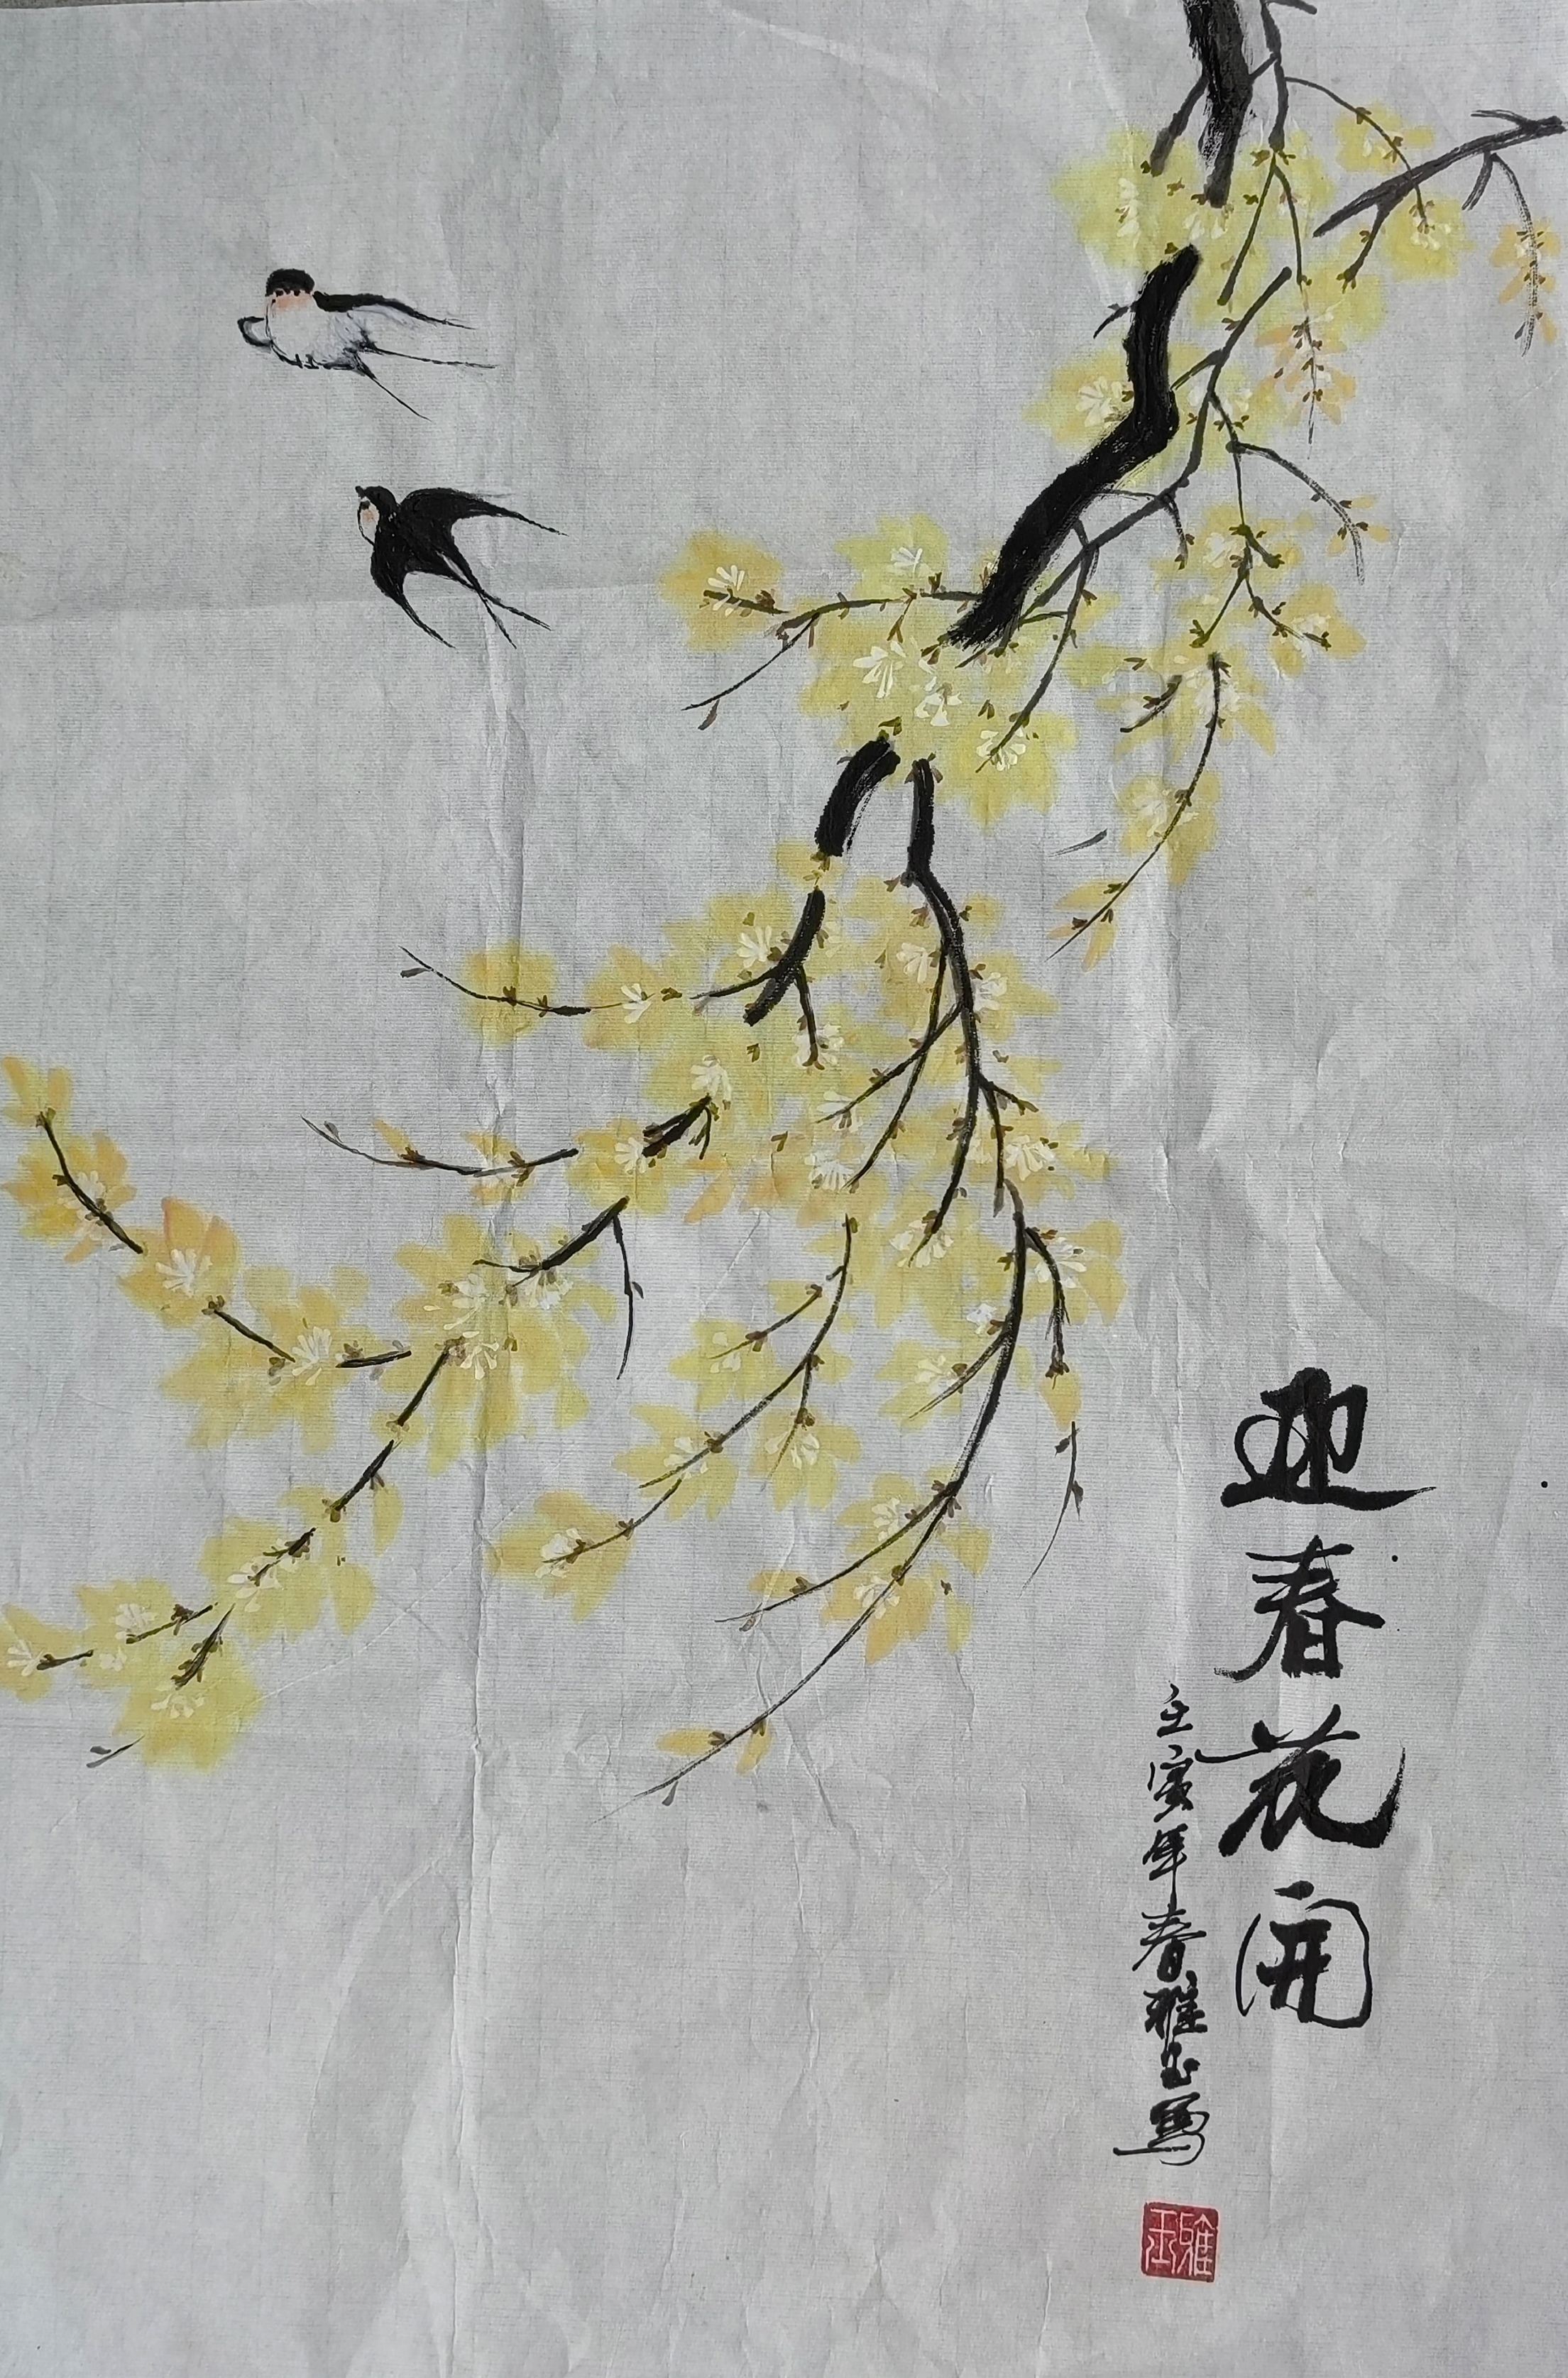 迎春花開
壬寅年春雅玉寫
雅玉